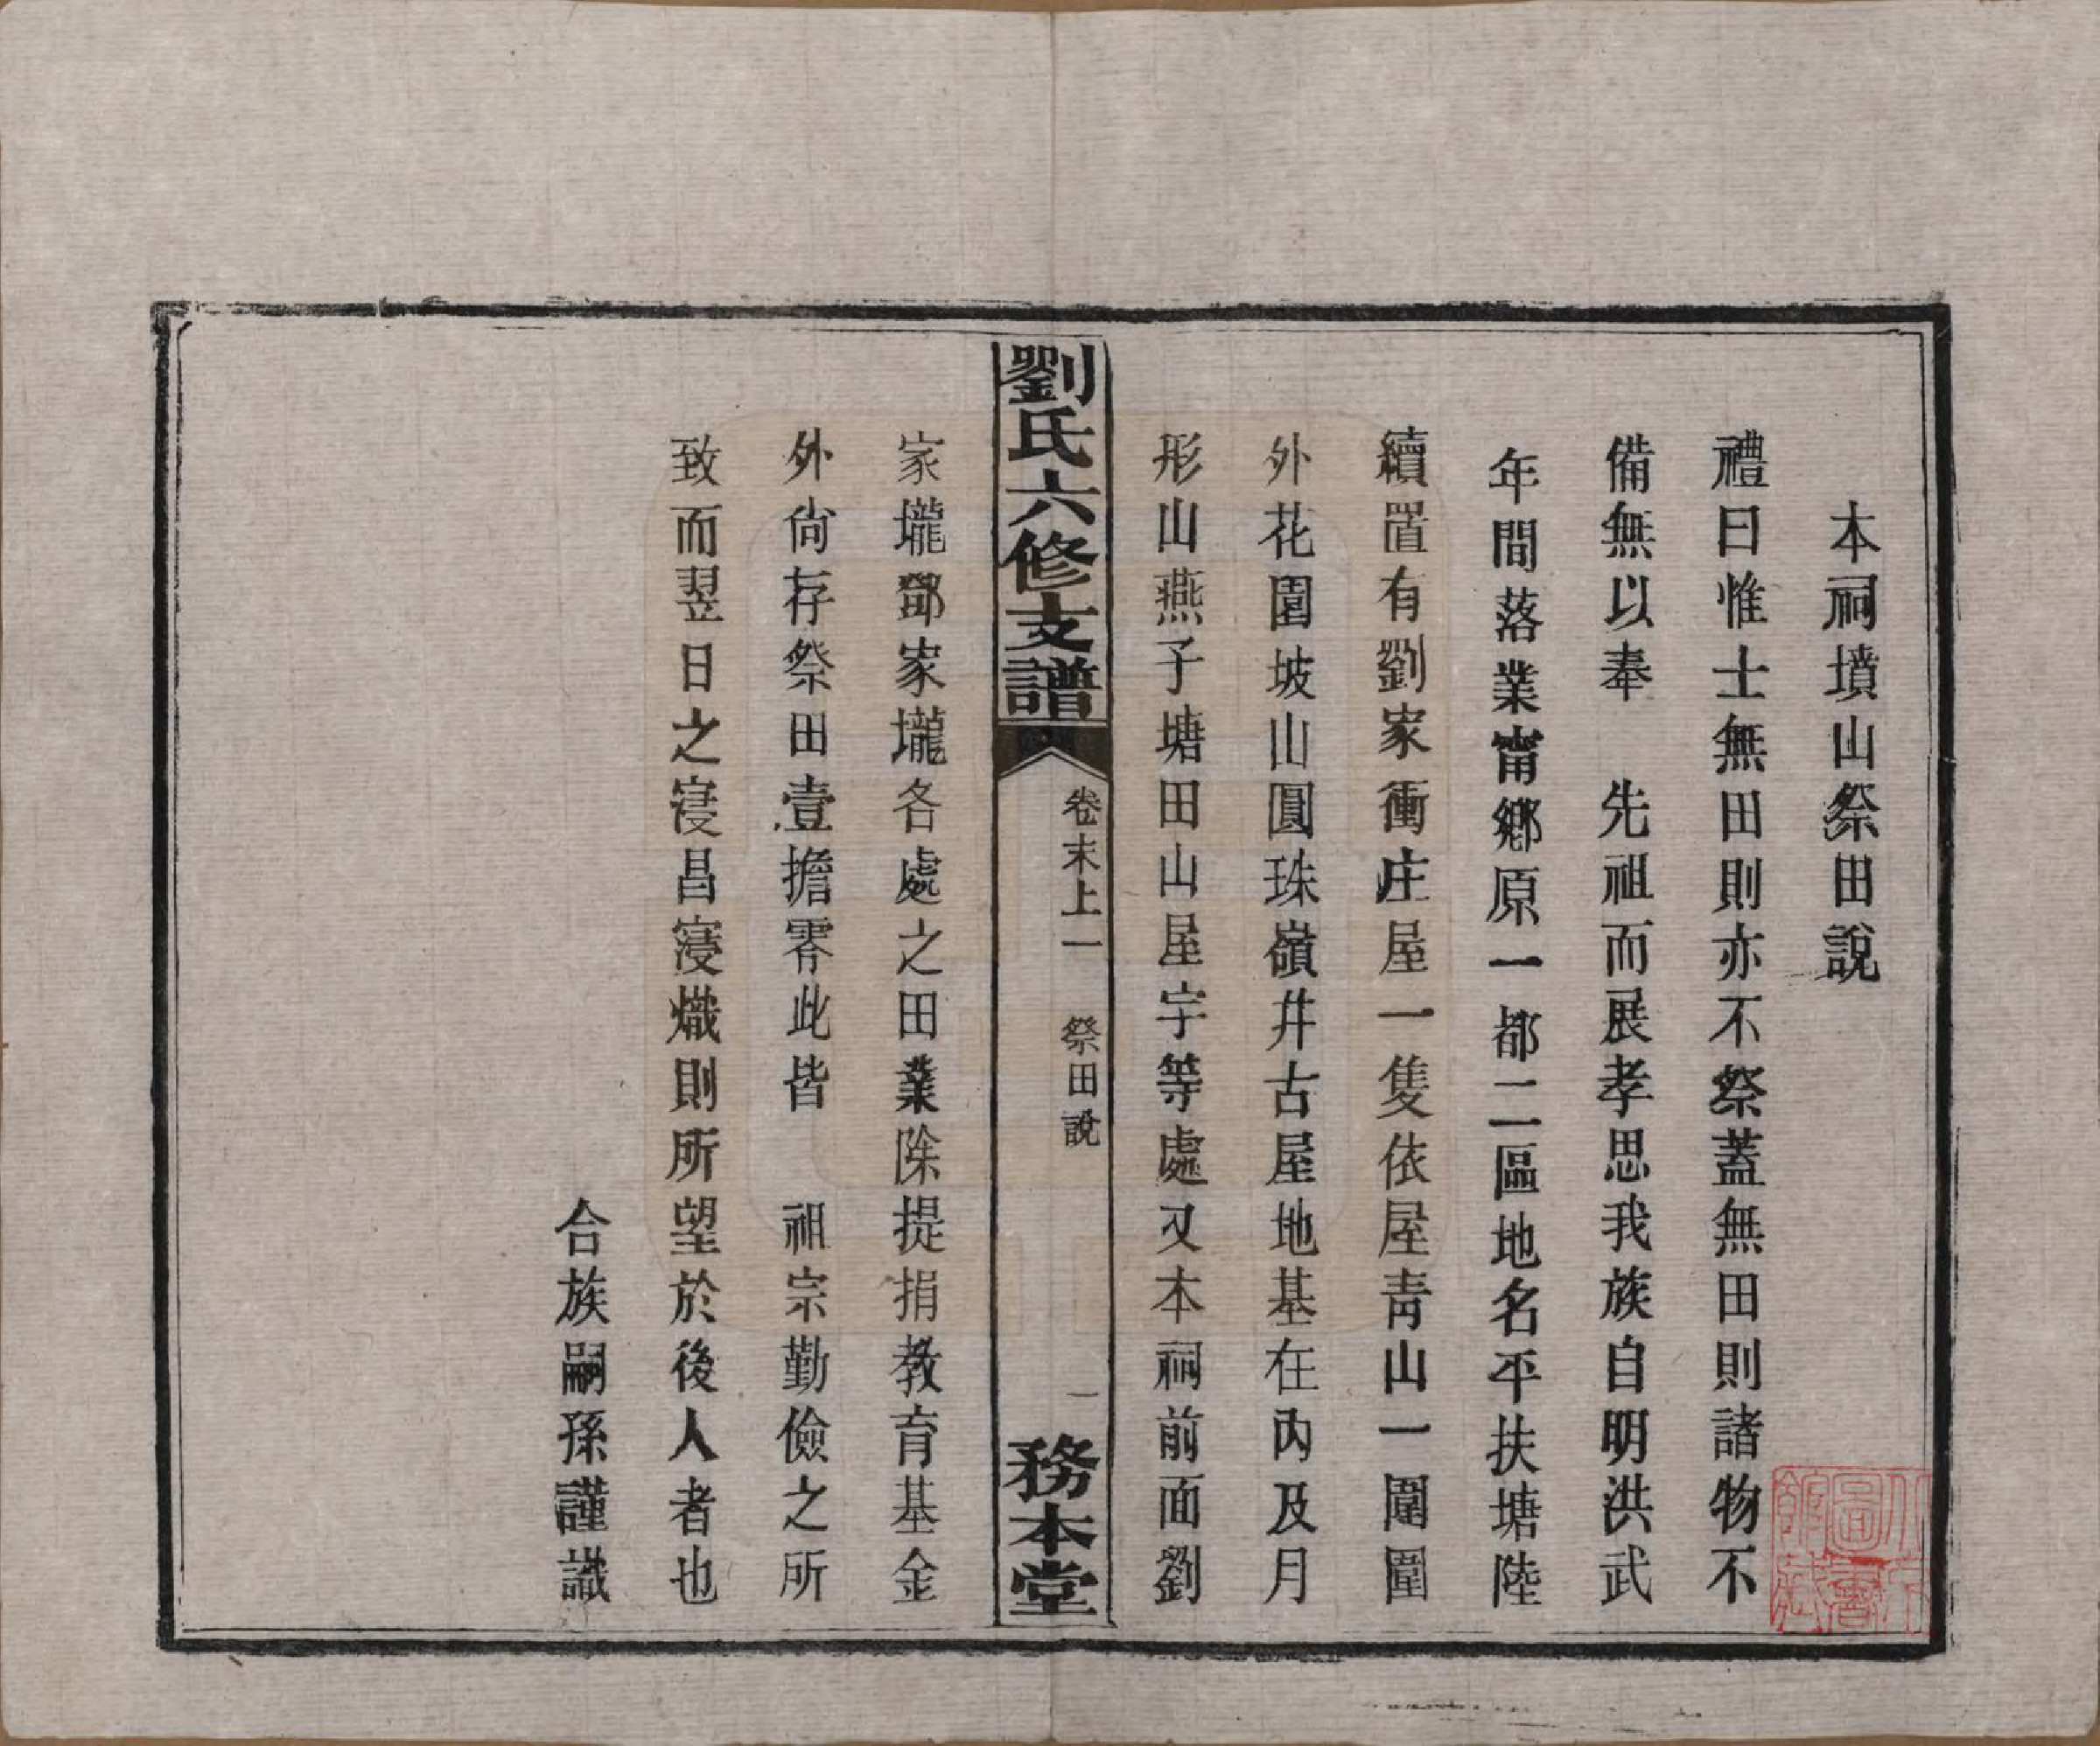 本祠墳山祭田說
禮曰惟士無田則亦不祭蓋無田則諸物不
備無以奉　先祖而展孝思我族自明洪武
年間落業甯鄉原一都二區地名平扶塘陸
續置有劉家衝庄屋一隻依屋青山一圍圍
外花園坡山圓珠嶺井古屋地基在內及月
形山燕子塘田山屋宇等處又本祠前面劉
劉氏六修支譜
卷末上一　祭田說
一
務本堂
家壠鄧家壠各處之田業除提捐教育基金
外尙存祭田壹擔零此皆　祖宗勤儉之所
致而翌日之寖昌寖熾則所望於後人者也
合族嗣孫謹識